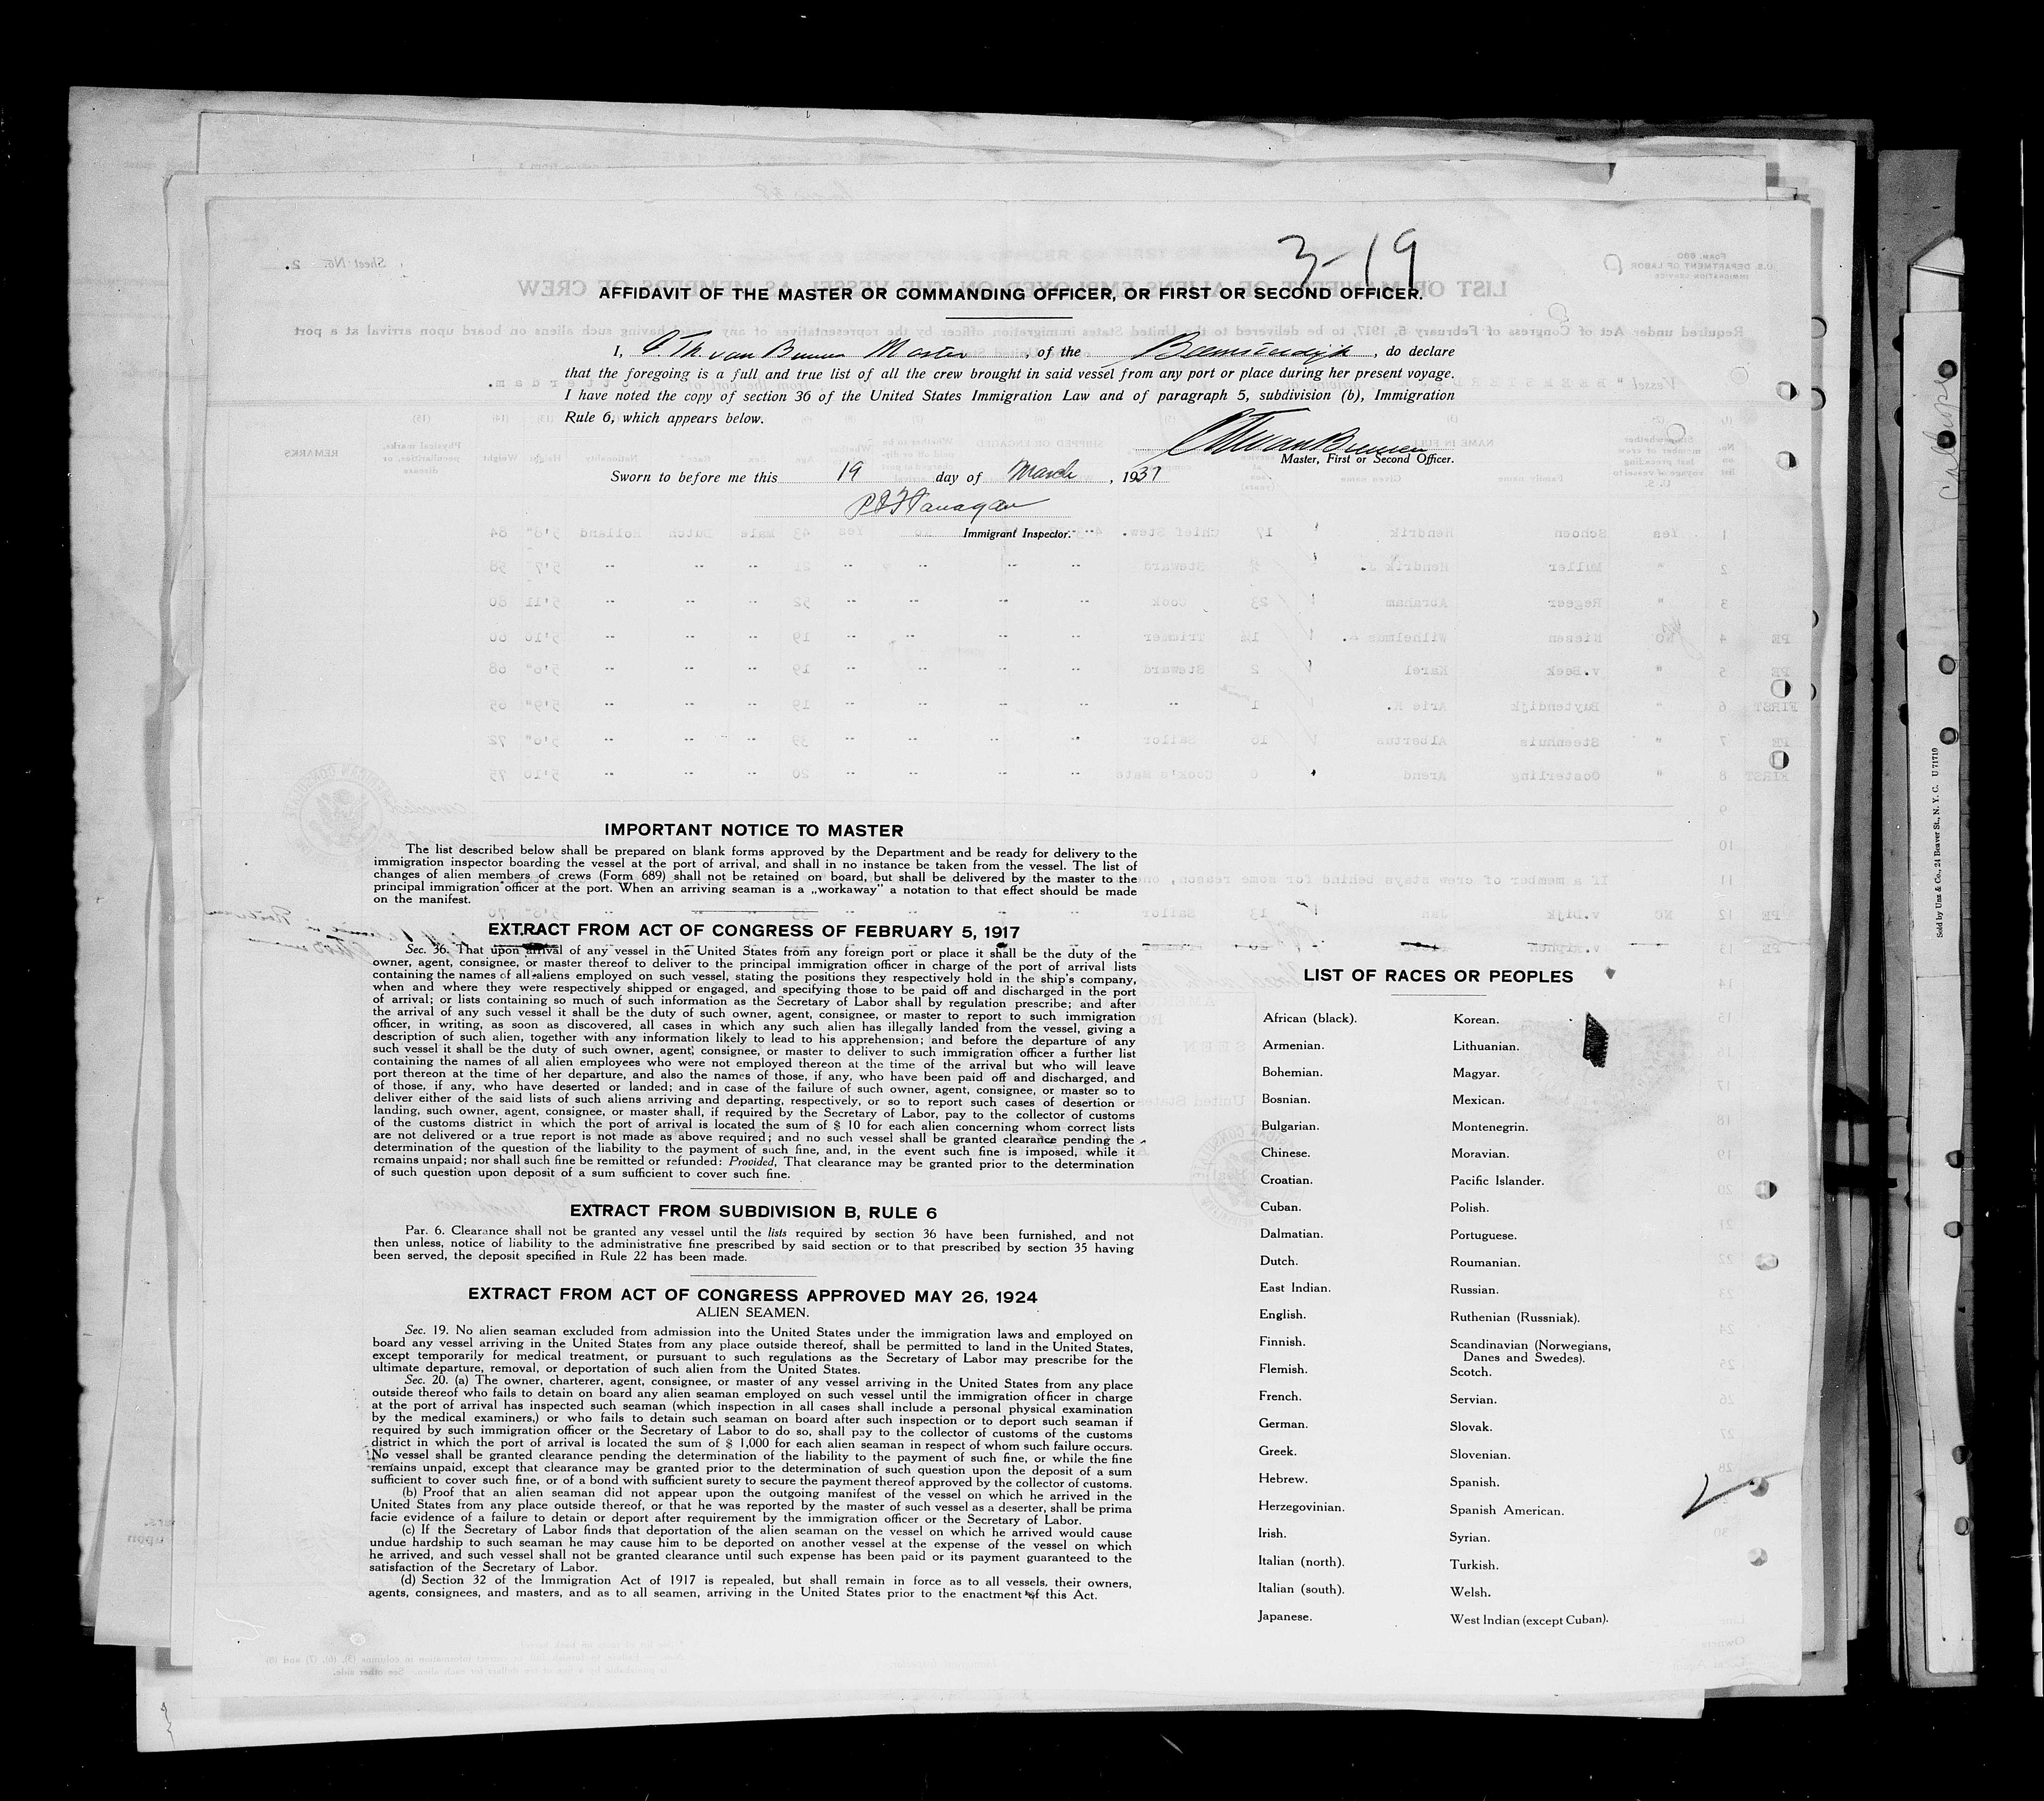 3-19
AFFIDAVIT OF THE MASTER OR COMMANDING OFFICER, OR FIRST OR SECOND OFFICER.
I, Th. van Master, of the Beemsterdijk, do declare
that the foregoing is a full and true list of all the crew brought in said vessel from any port or place during her present voyage.
I have noted the copy of section 36 of the United States Immigration Law and of paragraph 5, subdivision (b), Immigration
Rule 6, which appears below.
Master, First or Second Officer.
Sworn to before me this 19 day of March, 1937
Flanagan
Immigrant Inspector.
IMPORTANT NOTICE TO MASTER
The list described below shall be prepared on blank forms approved by the Department and be ready for delivery to the
immigration inspector boarding the vessel at the port of arrival, and shall in no instance be taken from the vessel. The list of
changes of alien members of crews (Form 689) shall not be retained on board, but shall be delivered by the master to the
principal immigration officer at the port. When an arriving seaman is a „workaway” a notation to that effect should be made
on the manifest.
EXTRACT FROM ACT OF CONGRESS OF FEBRUARY 5, 1917
Sec. 36. That upon arrival of any vessel in the United States from any foreign port or place it shall be the duty of the
owner, agent, consignee, or master thereof to deliver to the principal immigration officer in charge of the port of arrival lists
containing the names of all aliens employed on such vessel, stating the positions they respectively hold in the ship's company,
when and where they were respectively shipped or engaged, and specifying those to be paid off and discharged in the port
of arrival; or lists containing so much of such information as the Secretary of Labor shall by regulation prescribe; and after
the arrival of any such vessel it shall be the duty of such owner, agent, consignee, or master to report to such immigration
officer, in writing, as soon as discovered, all cases in which any such alien has illegally landed from the vessel, giving a
description of such alien, together with any information likely to lead to his apprehension; and before the departure of any
such vessel it shall be the duty of such owner, agent, consignee, or master to deliver to such immigration officer a further list
containing the names of all alien employees who were not employed thereon at the time of the arrival but who will leave
port thereon at the time of her departure, and also the names of those, if any, who have been paid off and discharged, and
of those, if any, who have deserted or landed; and in case of the failure of such owner, agent, consignee, or master so to
deliver either of the said lists of such aliens arriving and departing, respectively, or so to report such cases of desertion or
landing, such owner, agent, consignee, or master shall, if required by the Secretary of Labor, pay to the collector of customs
of the customs district in which the port of arrival is located the sum of $ 10 for each alien concerning whom correct lists
are not delivered or a true report is not made as above required; and no such vessel shall be granted clearance pending the
determination of the question of the liability to the payment of such fine, and, in the event such fine is imposed, while it
remains unpaid; nor shall such fine be remitted or refunded: Provided, That clearance may be granted prior to the determination
of such question upon deposit of a sum sufficient to cover such fine.
EXTRACT FROM SUBDIVISION B, RULE 6
Par. 6. Clearance shall not be granted any vessel until the lists required by section 36 have been furnished, and not
then unless, notice of liability to the administrative fine prescribed by said section or to that prescribed by section 35 having
been served, the deposit specified in Rule 22 has been made.
EXTRACT FROM ACT OF CONGRESS APPROVED MAY 26, 1924
ALIEN SEAMEN.
Sec. 19. No alien seaman excluded from admission into the United States under the immigration laws and employed on
board any vessel arriving in the United States from any place outside thereof, shall be permitted to land in the United States,
except temporarily for medical treatment, or pursuant to such regulations as the Secretary of Labor may prescribe for the
ultimate departure, removal, or deportation of such alien from the United States.
Sec. 20. (a) The owner, charterer, agent, consignee, or master of any vessel arriving in the United States from any place
outside thereof who fails to detain on board any alien seaman employed on such vessel until the immigration officer in charge
at the port of arrival has inspected such seaman (which inspection in all cases shall include a personal physical examination
by the medical examiners,) or who fails to detain such seaman on board after such inspection or to deport such seaman if
required by such immigration officer or the Secretary of Labor to do so, shall pay to the collector of customs of the customs
district in which the port of arrival is located the sum of $ 1,000 for each alien seaman in respect of whom such failure occurs.
No vessel shall be granted clearance pending the determination of the liability to the payment of such fine, or while the fine
remains unpaid, except that clearance may be granted prior to the determination of such question upon the deposit of a sum
sufficient to cover such fine, or of a bond with sufficient surety to secure the payment thereof approved by the collector of customs.
(b) Proof that an alien seaman did not appear upon the outgoing manifest of the vessel on which he arrived in the
United States from any place outside thereof, or that he was reported by the master of such vessel as a deserter, shall be prima
facie evidence of a failure to detain or deport after requirement by the immigration officer or the Secretary of Labor.
(c) If the Secretary of Labor finds that deportation of the alien seaman on the vessel on which he arrived would cause
undue hardship to such seaman he may cause him to be deported on another vessel at the expense of the vessel on which
he arrived, and such vessel shall not be granted clearance until such expense has been paid or its payment guaranteed to the
satisfaction of the Secretary of Labor.
(d) Section 32 of the Immigration Act of 1917 is repealed, but shall remain in force as to all vessels, their owners,
agents, consignees, and masters, and as to all seamen, arriving in the United States prior to the enactment of this Act.
LIST OF RACES OR PEOPLES
African (black).
Armenian.
Bohemian.
Bosnian.
Bulgarian.
Chinese.
Croatian.
Cuban.
Dalmatian.
Dutch.
East Indian.
English.
Finnish.
Flemish.
French.
German.
Greek.
Hebrew.
Herzegovinian.
Irish.
Italian (north).
Italian (south).
Japanese.
Korean.
Lithuanian.
Magyar.
Mexican.
Montenegrin.
Moravian.
Pacific Islander.
Polish.
Portuguese.
Roumanian.
Russian.
Ruthenian (Russniak).
Scandinavian (Norwegians,
Danes and Swedes).
Scotch.
Servian.
Slovak.
Slovenian.
Spanish.
Spanish American.
Syrian.
Turkish.
Welsh.
West Indian (except Cuban).
Sold by Unz & Co., 24 Beaver St., N. Y. C. U 71710